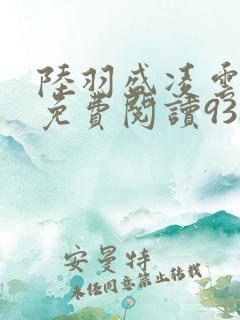 陸羽盛凌雲
免費閱讀93
安曼特
未經同意禁止轉載